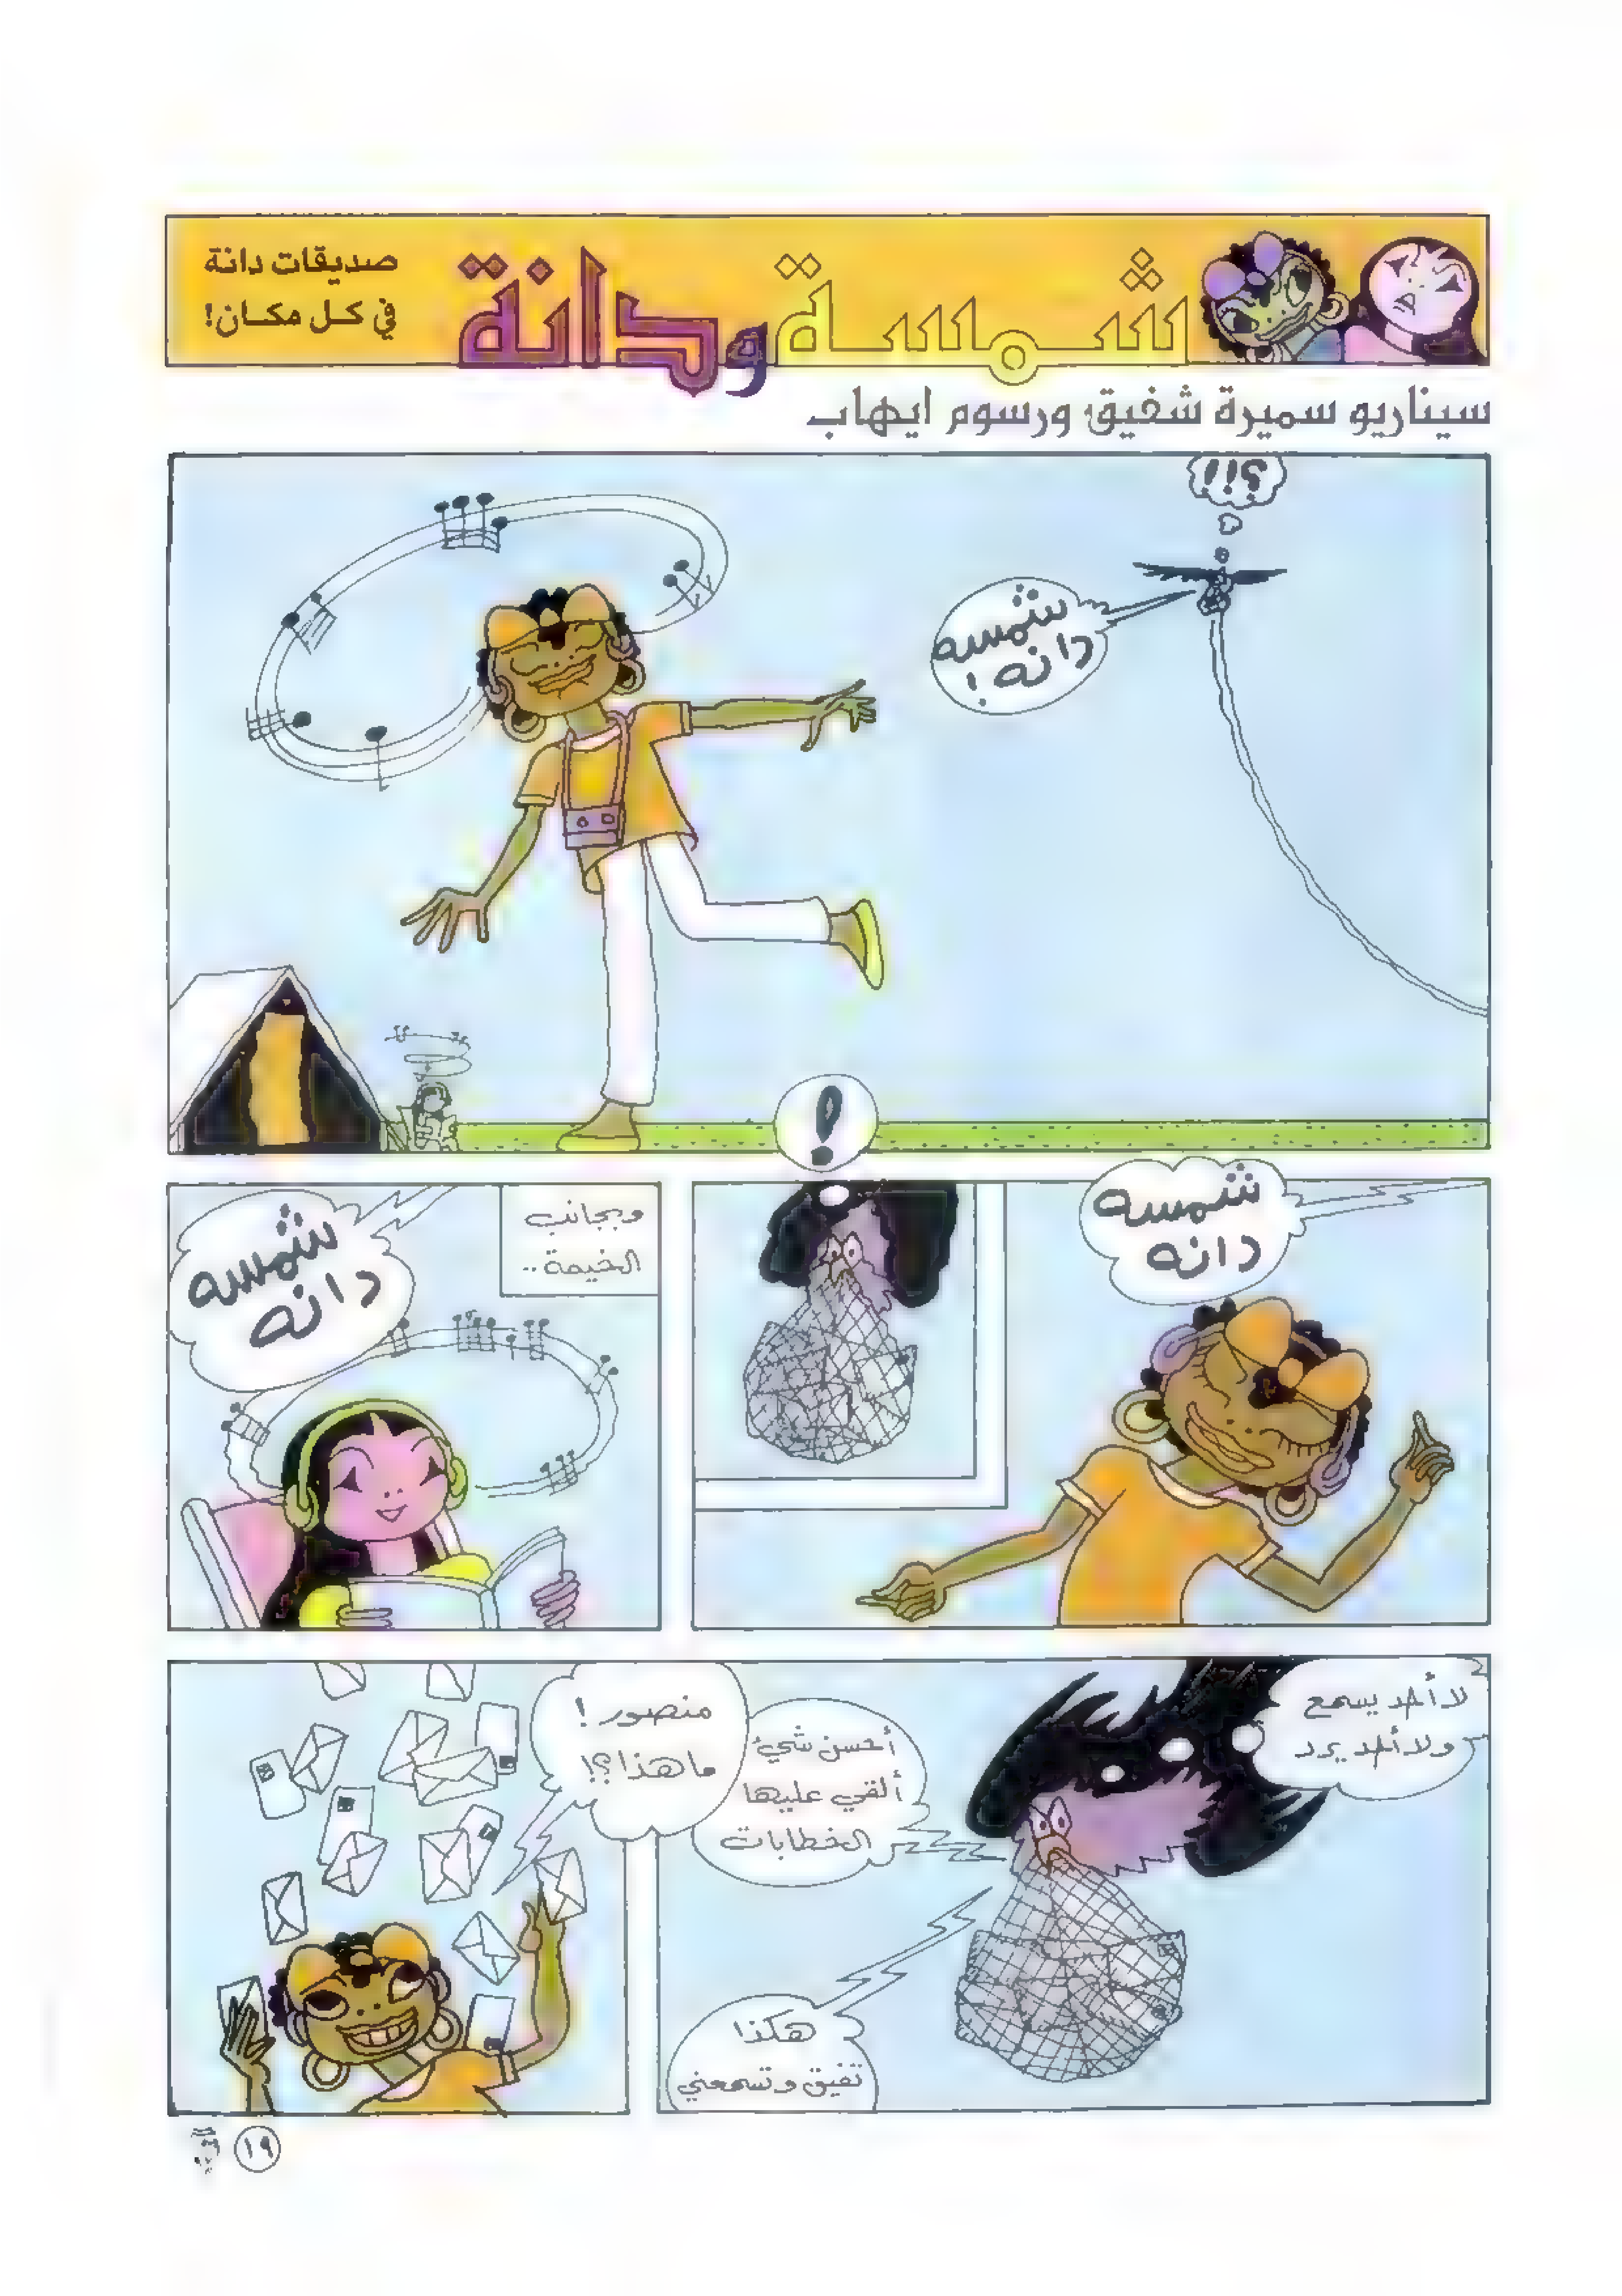 شمسة ودانة
صديقات دانة
في كل مكان!
سيناريو سميرة شفيق ورسوم ايهاب
؟!!
شمسه
دانه !
!
شمسه
دانه
وبجانب
الخيمة ..
شمسه
دانه
لا أحد يسمع
ولا أحد يرد
أحسن شيئ
ألقي عليها
الخطابات
هكذا
تفيق وتسمعني
منصور !
ما هذا ؟!
١٩